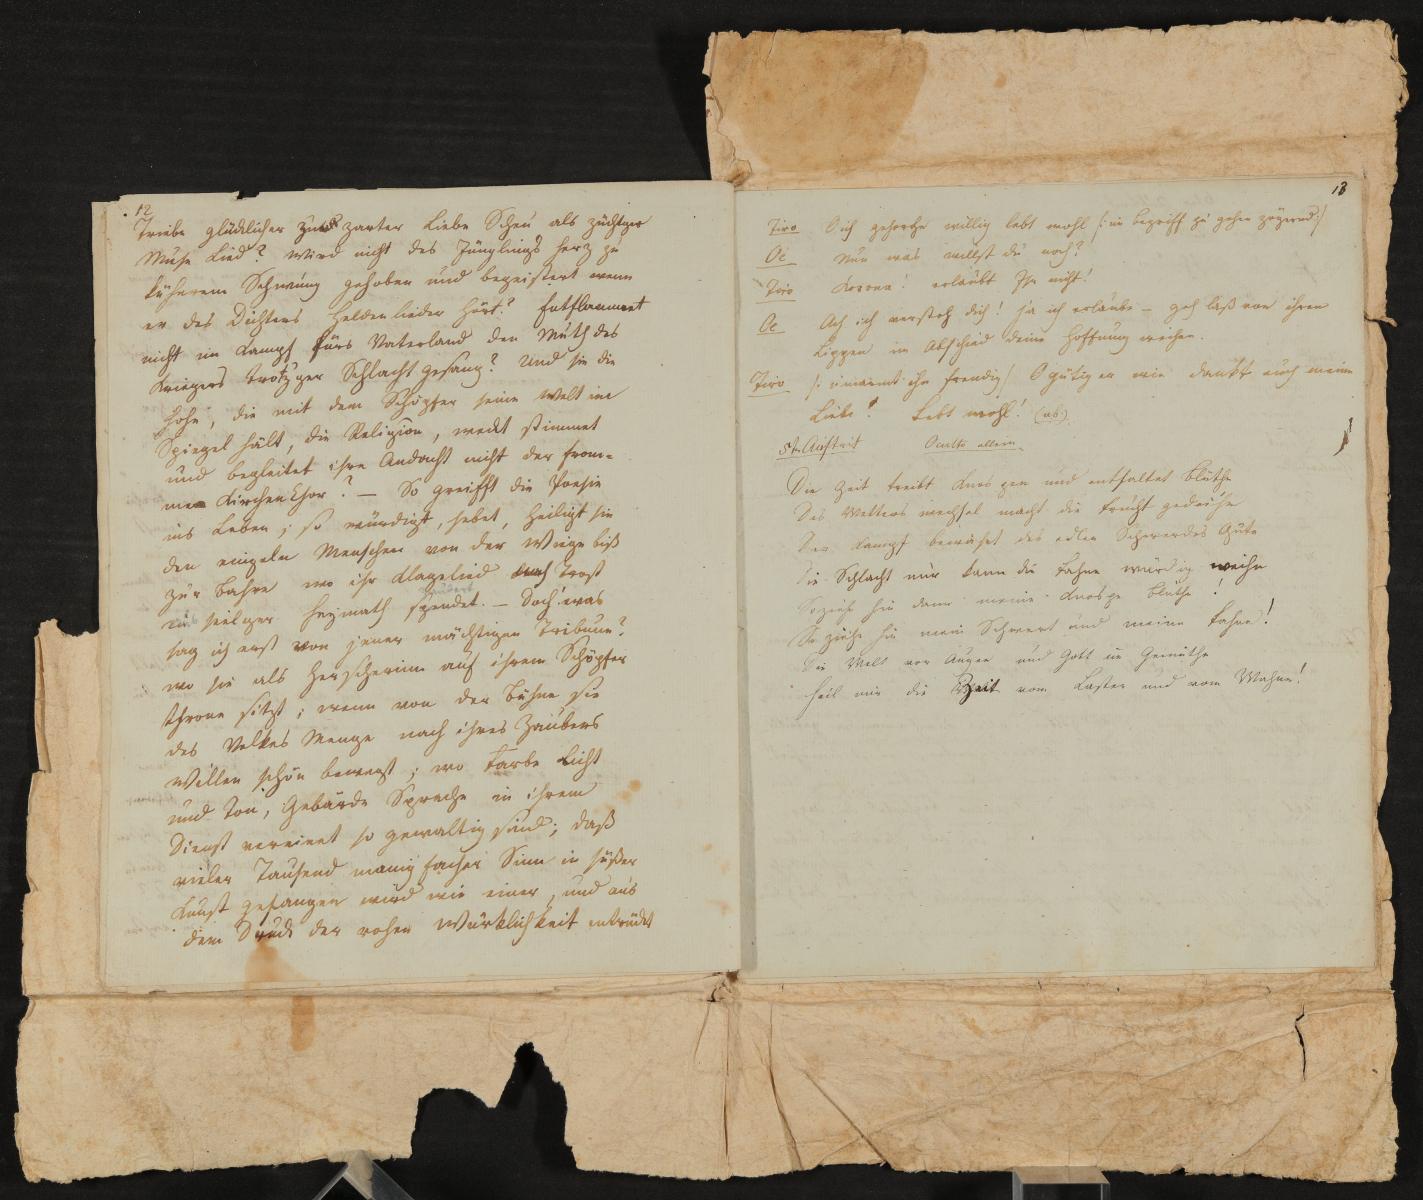 12
Triebe glücklicher zur zarter Liebe Scheu als züchtger
Muse Lied? wird nicht des Jünglings Herz zu
küherem Schwung gehoben und begeistert wenn
er des Dichters Heldenlieder hört? Entflammet
nicht im Kampf fürs Vaterland den Muth des
Kriegers trotzger Schlachtgesang? Und sie die
Hohe, die mit dem Schöpfer seine Welt im
Spiegel hält, die Religion, weckt stimmet
und begleitet ihre Andacht nicht der from-
me Kirchen Chor? — So greifft die Poesie
ins Leben; so würdigt, hebet, heiligt sie
den einzeln Menschen von der Wiege biß
zur Bahre wo ihr Klagelied noch Trost
in seelger Heymath spendet. — Doch was
sag ich erst von jener mächtigen Tribune?
wo sie als Herscherinn auf ihrem Schöpfer
throne sitzt; wenn von der Bühne sie
des Volkes Menge nach ihres Zaubers
Willen schön bewegt; wo Farbe Licht
und Ton, Gebärde Sprache in ihrem
Dienst vereinet so gewaltig sind; daß
vieler Tausend manigfacher Sinn in süßer
Kunst gefangen wird wie einer, und aus
dem Staube der rohen Würklichkeit entrückt
13
Tiro Euch gehorche willig lebt wohl /: im begriff zu gehen zögernd :/
Oc Nun was willst du noch?
Tiro Korona! erlaubt Ihr nicht!
Oc Ach ich versteh dich! ja ich erlaube — geh laß von ihren
Lippen im Abschied deine Hoffnung weihen.
Tiro /: umarmt ihn freudig / O gütiger wie dankt euch meine
Liebe! Lebt wohl! (ab)
5t Auftrit Oculto allein
Die Zeit treibt Knospen und entfaltet Blüthe
Des Wetters wechsel macht die Frucht gedeihe
Der Kampf bewährt des edlen Schwerdes Güte
Die Schlacht nur kann die Fahne würdig weihe
So ziehe hin denn meine Knospe Blüthe!
So ziehe hin mein Schwert und meine Fahne!
Die Welt vor Augen und Gott im Gemüthe
Heil mir die Zeit vom Laster und vom Wahne!